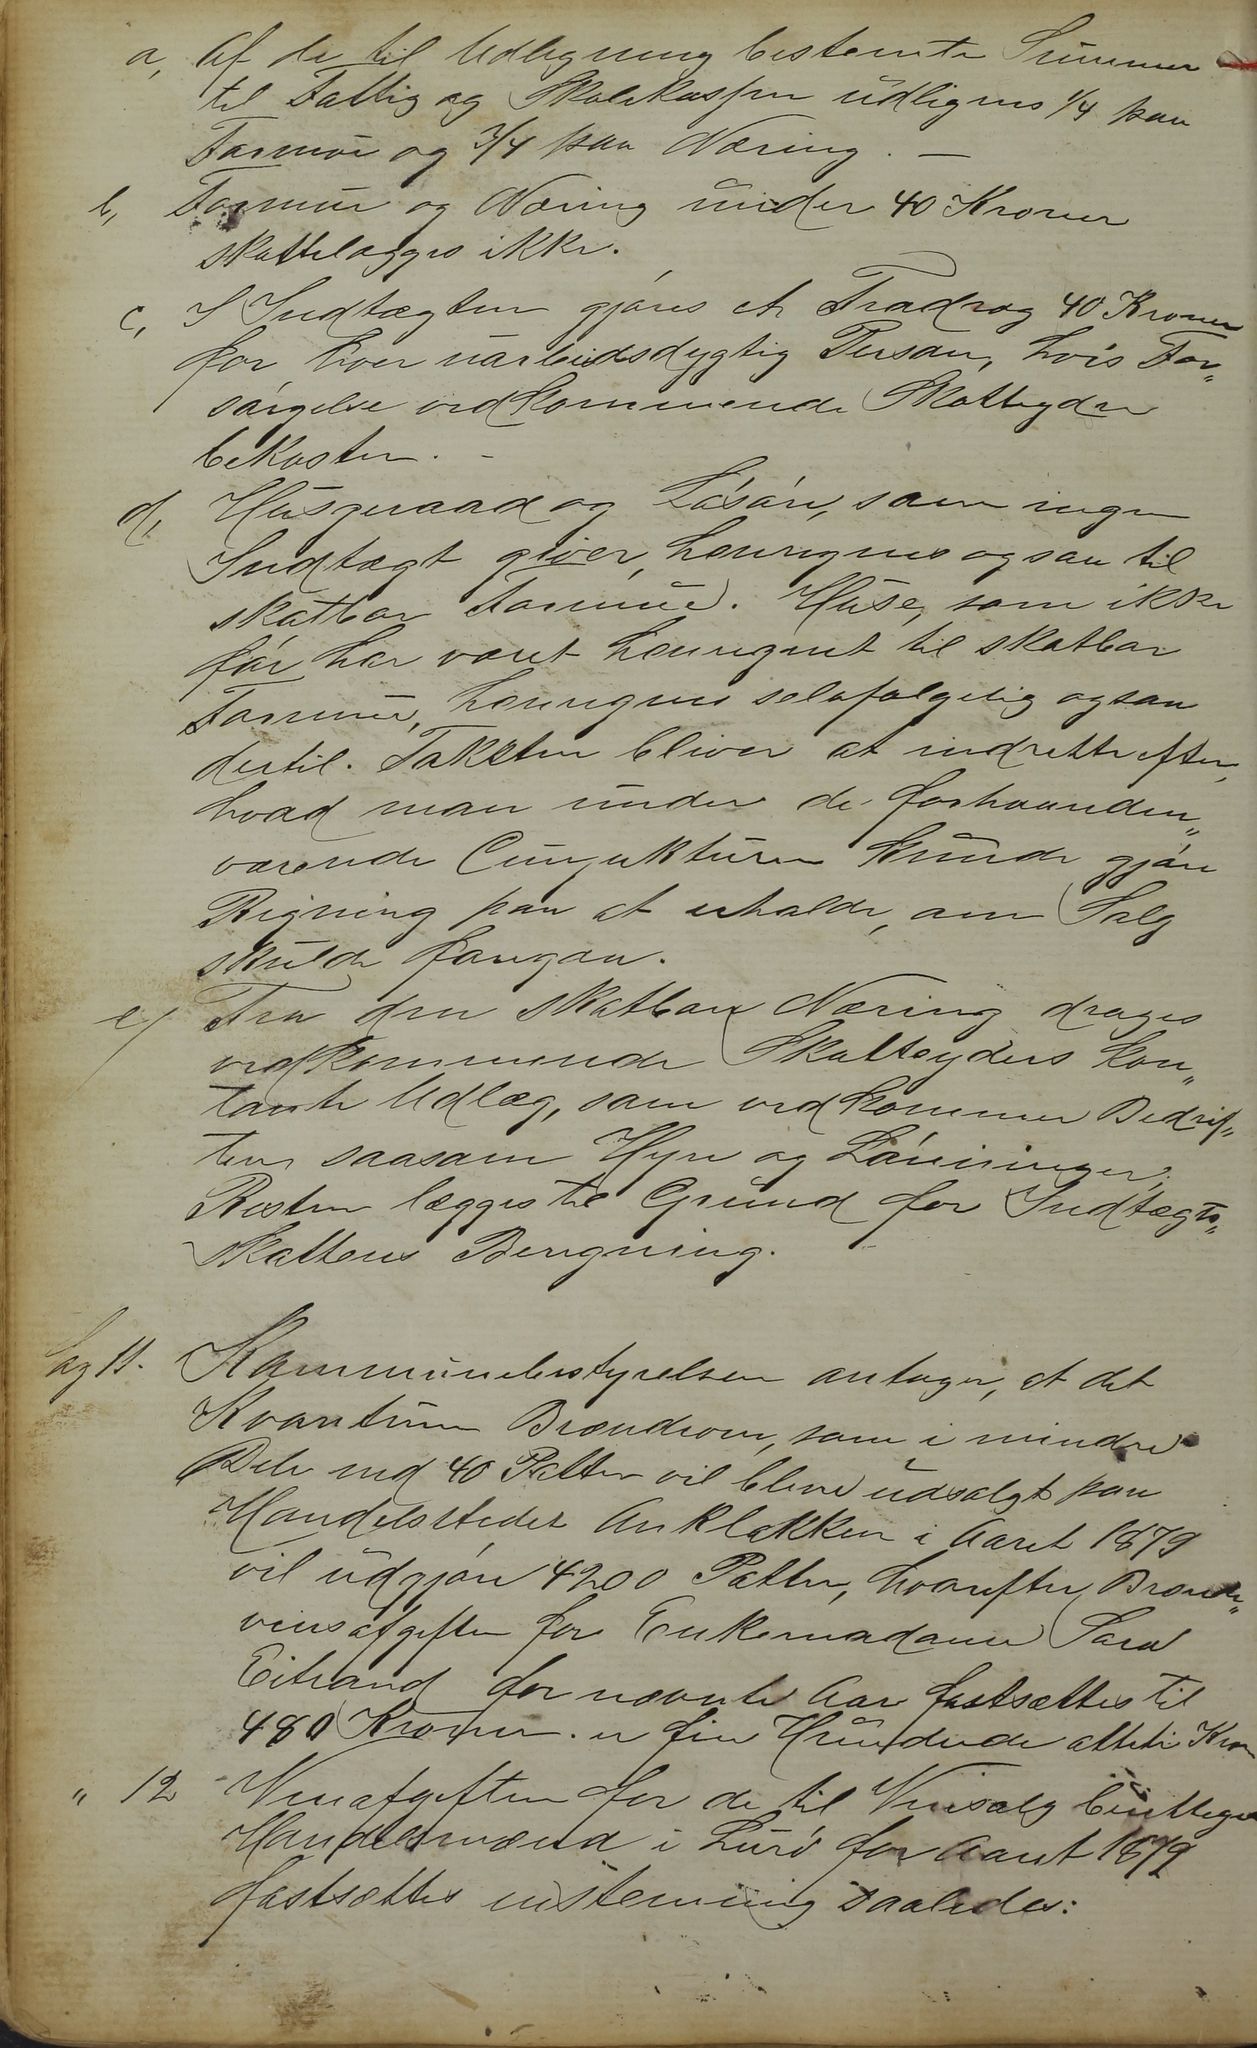 a, Af de til Udligning bestemte Summer
til Fattig og Skolekassen udlignes 1/4 paa
Formue og 3/4 paa Næring. —
b, Formue og Næring under 40 Kroner
skattelægges ikke.
c, I Indtægten gjøres et Fradrag 40 Kroner
for hver uarbeidsdygtig Person, hvis For„
sørgelse vedkommende Skatteyder
bekoster. -
d, Husgeraad og Løsøre, som ingen
Indtægt giver, henregnes ogsaa til
skatbar Formue. Huse, som ikke
før har været henregnet til skatbar
Formue, henregnes selvfølgelig ogsaa
dertil. Taksten bliver at indrette efter,
hvad man under de forhaanden„
værende Conjukturer kunde gjøre
Regning paa at erholde, om Salg
skulde foregaa.
e/ Fra den skatbare Næring drages
vedkommende Skatteyders kon„
tante Udlæg, som vedkommer Bedrif„
ten saasom Hyre og Lønninger.
Resten lægges til Grund for Indtægts„
skattens Beregning.
Sag 11. Kommunebestyrelsen antager, at det
Kvantum Brændeviin, som i mindre
Dele end 40 Potter vil blive udsalgt paa
Handelsstedet Anklakken i Aaret 1879
vil udgjøre 4200 Potter, hvorefter Brænde„
vinsafgiften for Enkemadame Sara
Eitrand for nævnte Aar fastsættes til
480 Kroner. er fire Hundrede otteti Kron
„ 12 Vinafgiften for de til Vinsalg berettigede
Handelsmænd i Lurø for Aaret 1879
fastsættes enstemmig saaledes: